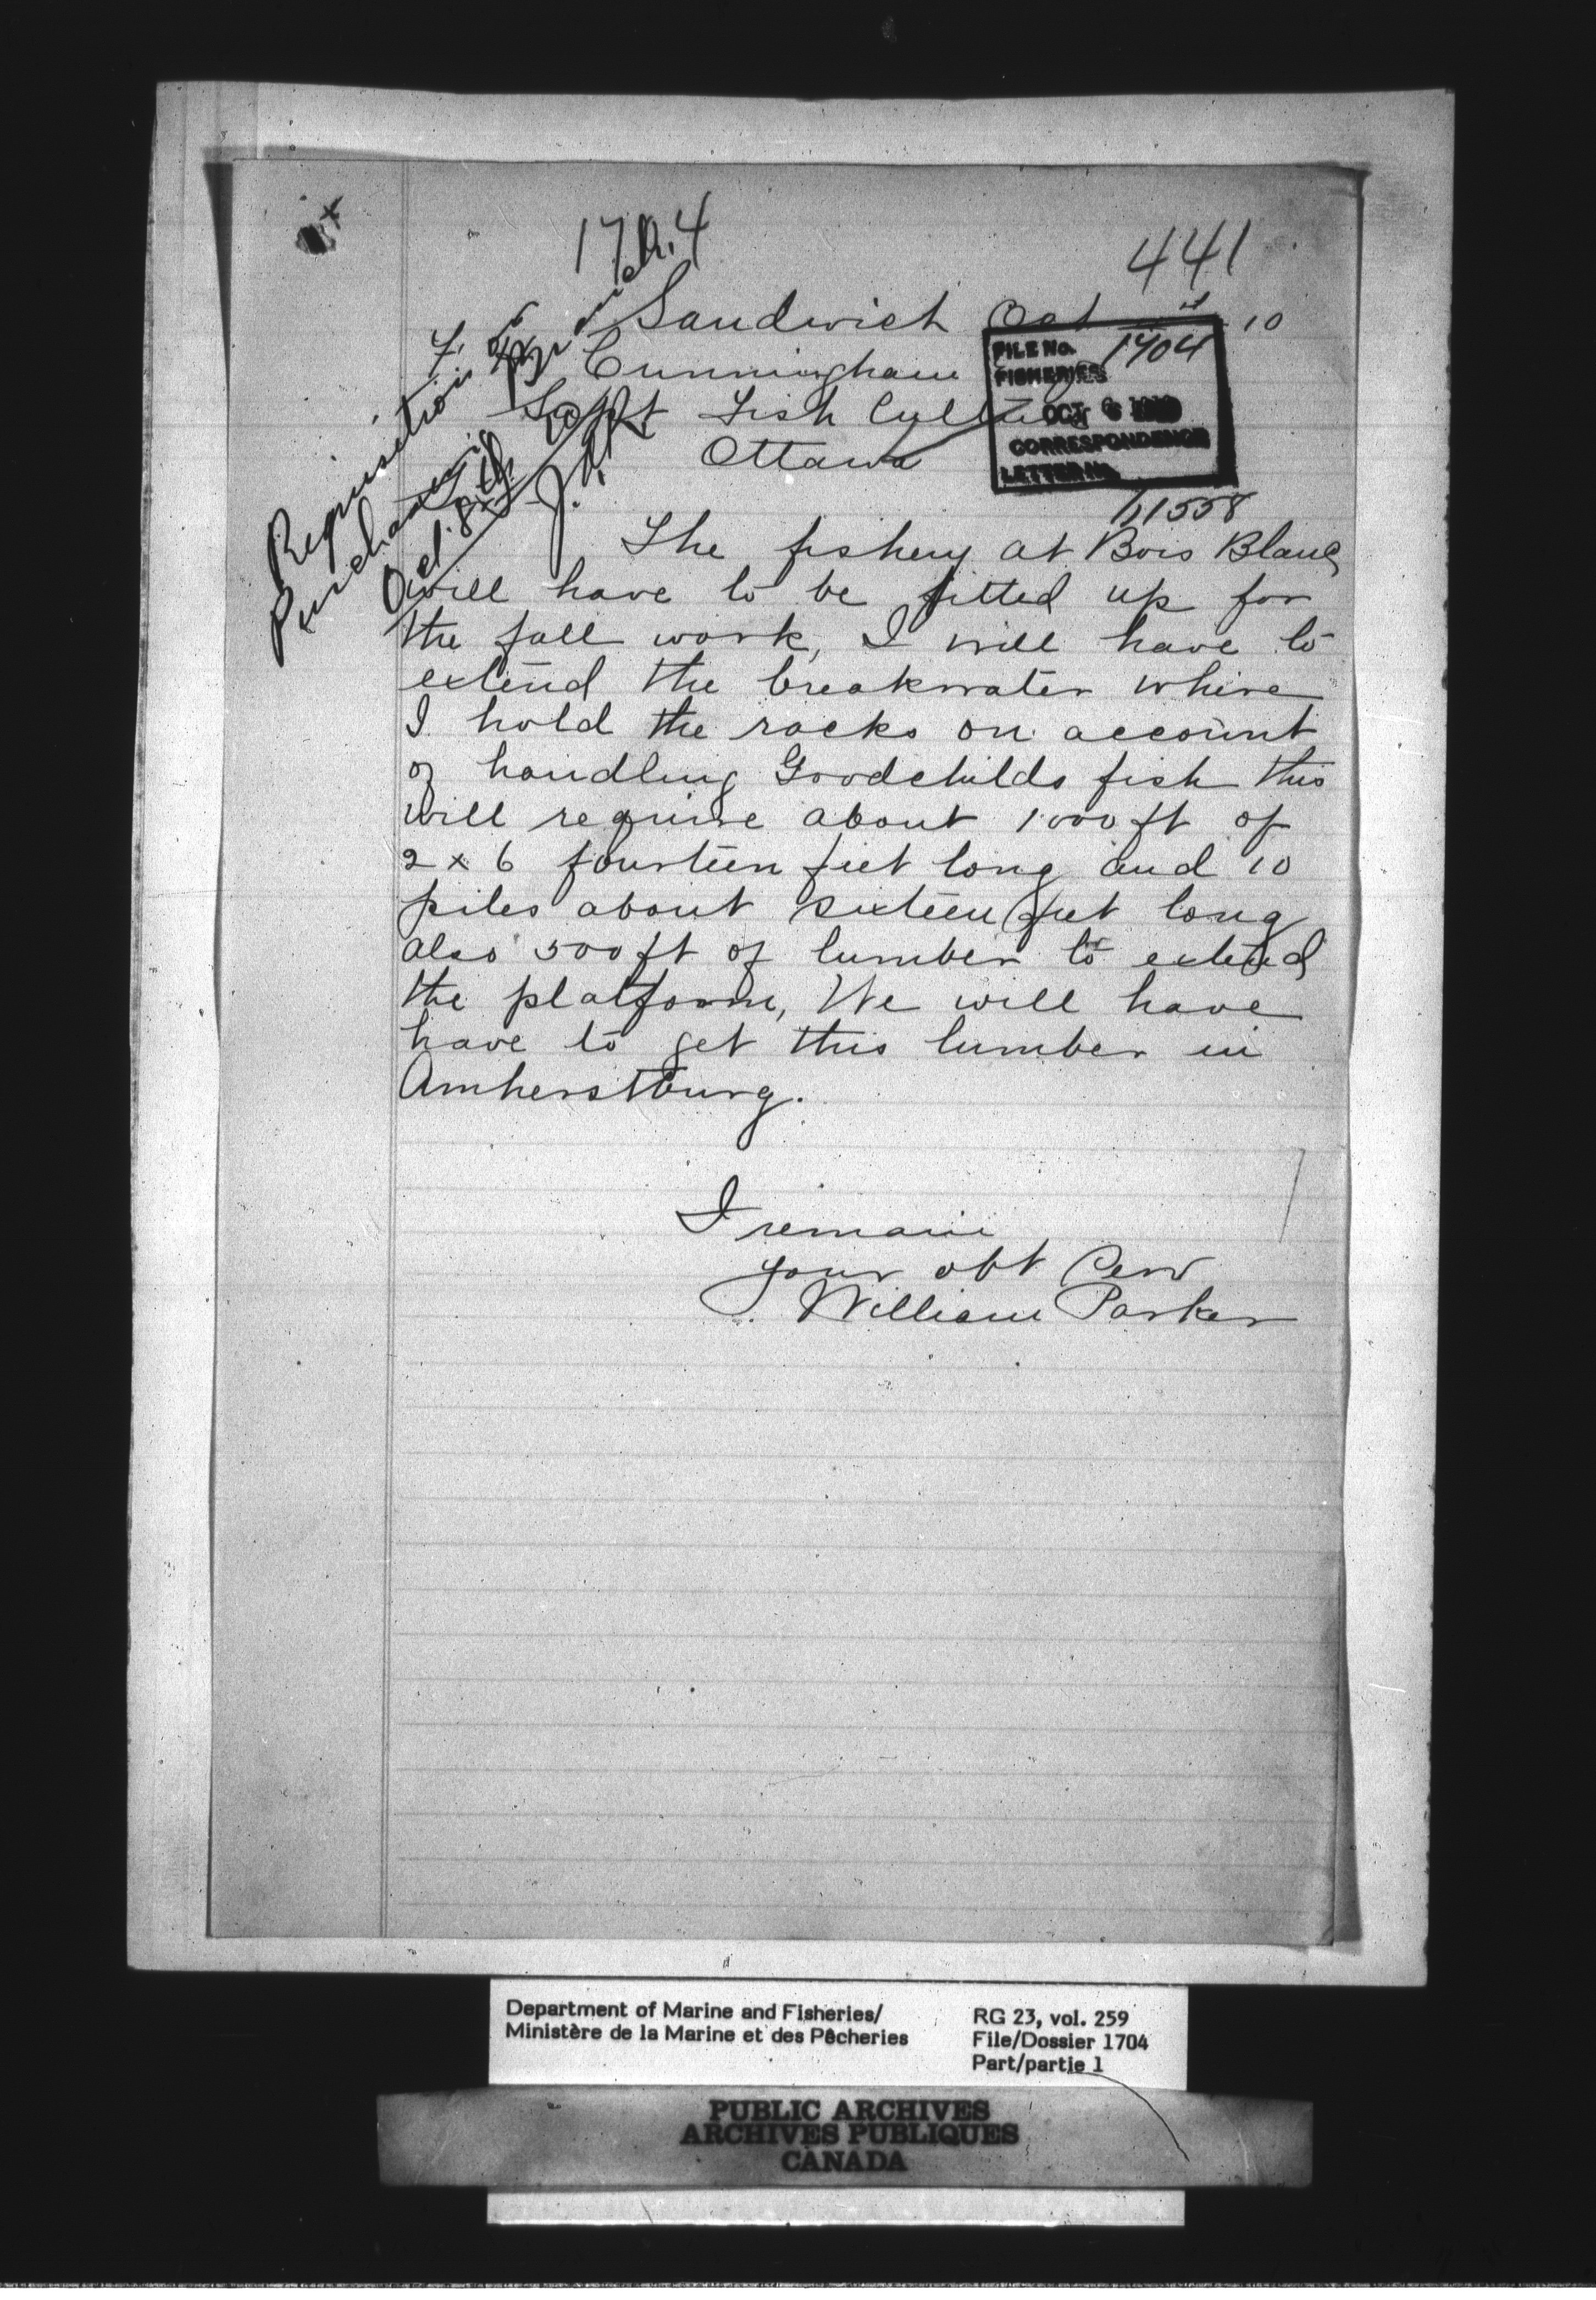 1704
441
Sandwich Oct 10
F. Cunningham
Supt Fish Culture
Ottawa
FILE No. 1704
FISHERIES
OCT 6 1910
CORRESPONDENCE
LETTER No.
11558
Requisition to
Purchasing Branch.
Oct. 8th
The fishery at Bois Blanc
will have to be fitted up for
the fall work, I will have to
extend the breakwater where
I hold the racks on account
of handling Goodchilds fish this
will require about 1000 ft of
2 x 6 fourteen feet long and 10
piles about sixteen feet long
also 500 ft of lumber to extend
the platform, We will have
have to get this lumber in
Amherstburg.
I remain
your obt Serv
William Parker
Department of Marine and Fisheries/
Ministère de la Marine et des Pêcheries
RG 23, vol. 259
File/Dossier 1704
Part/partie 1
PUBLIC ARCHIVES
ARCHIVES PUBLIQUES
CANADA